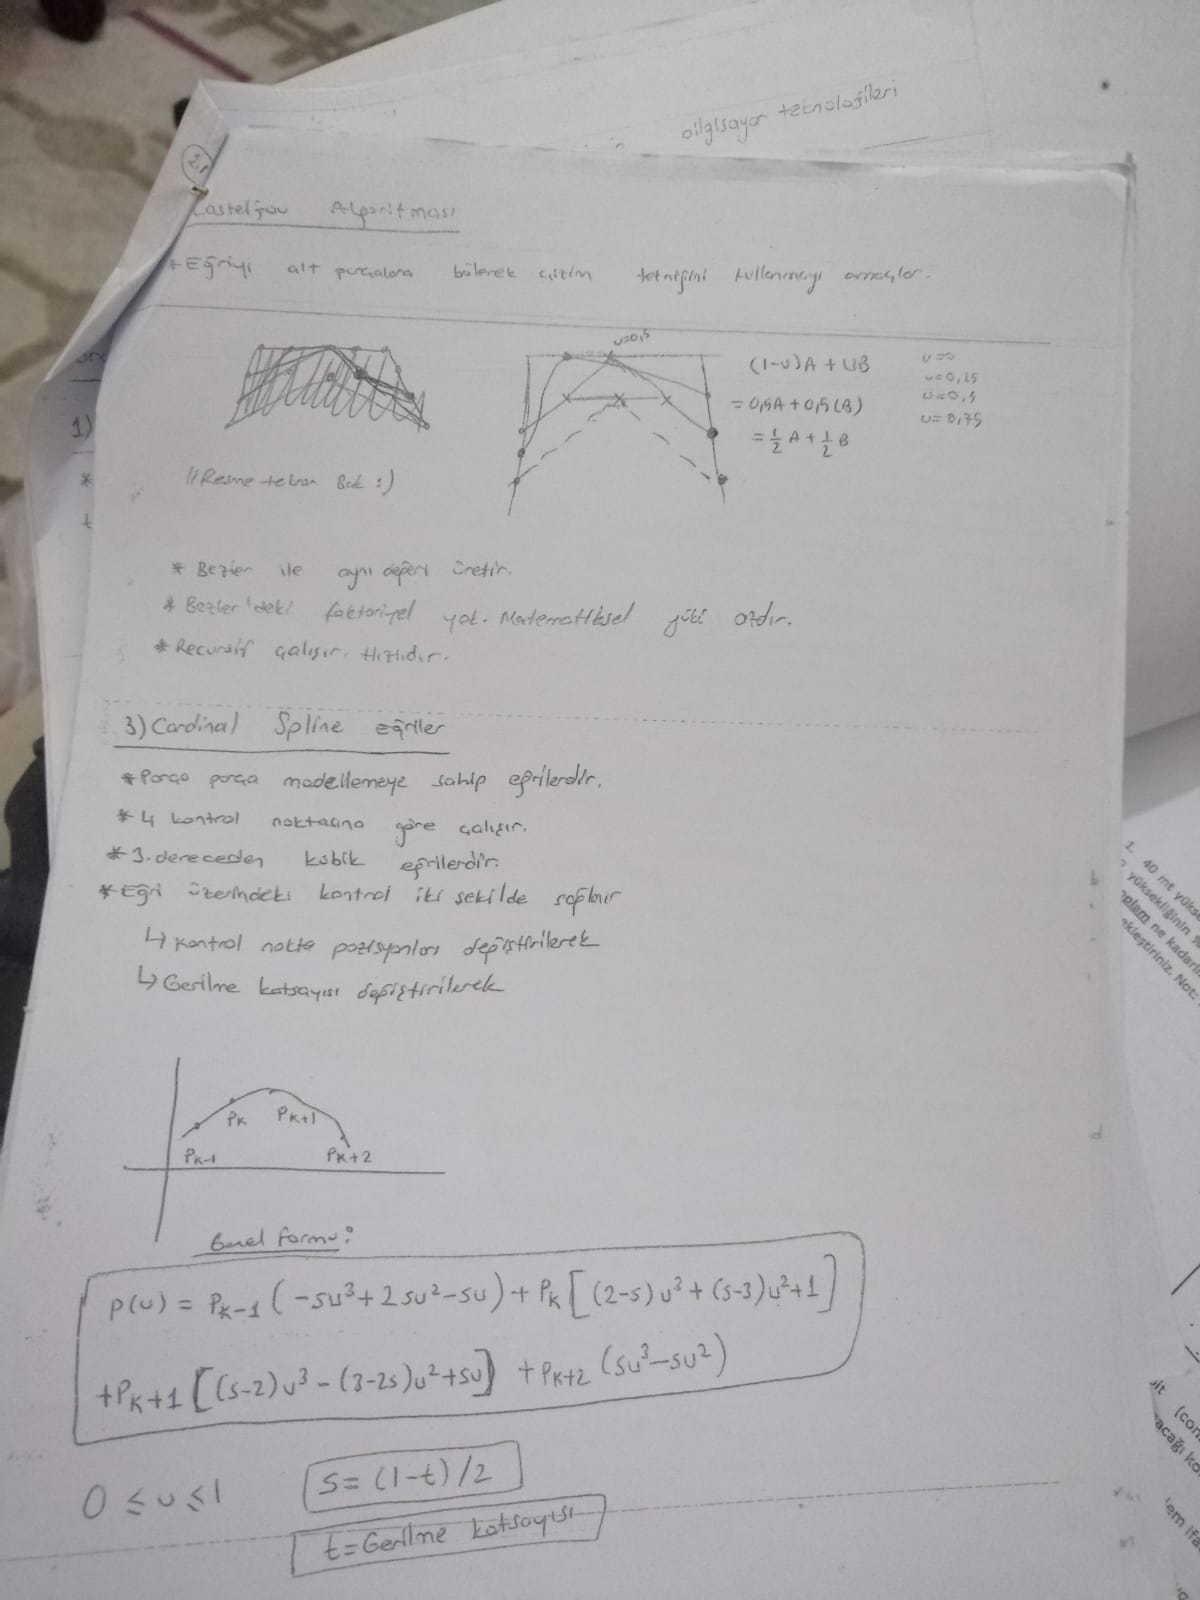 bilgisayar teknolojileri
2.1
Casteljau Algoritması
* Eğriyi alt parçalara bölerek çizim tekniğini kullanmayı amaçlar.
u=0,5
(1-u)A + uB
= 0,5A + 0,5(B)
= 1/2 A + 1/2 B
u=0
u=0,25
u=0,5
u=0,75
1)
//Resme tekrar Bak :)
* Bezier ile aynı değeri üretir.
* Bezier'deki faktoriyel yok. Matematiksel yükü azdır.
* Recursif çalışır. Hızlıdır.
3) Cardinal Spline eğriler
* Parça parça modellemeye sahip eğrilerdir.
* 4 kontrol noktasına göre çalışır.
* 3. dereceden kubik eğrilerdir.
* Eğri üzerindeki kontrol iki şekilde sağlanır
↳ Kontrol nokta pozisyonları değiştirilerek
↳ Gerilme katsayısı değiştirilerek
PK PK+1
PK-1 PK+2
Genel Formu:
p(u) = PK-1 (-su³+2su²-su) + PK [(2-s)u³ + (s-3)u²+1]
+PK+1 [(s-2)u³ - (3-2s)u²+su] + PK+2 (su³-su²)
0 ≤ u ≤ 1 s = (1-t)/2
t = Gerilme katsayısı
40 mt yükse
yüksekliğinin %
ne kadarlı
ekleştiriniz. Not:
(con
acağı ko